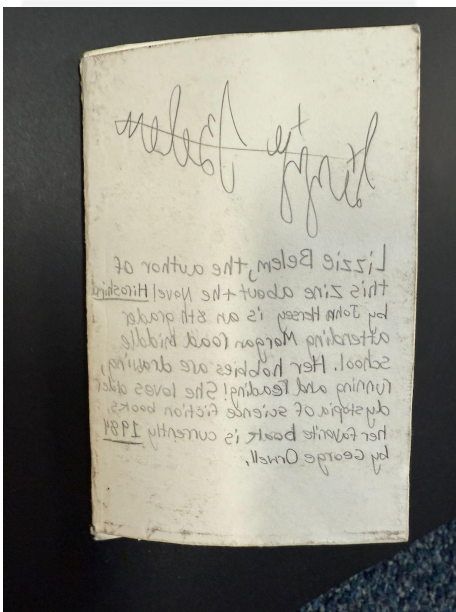 Lizzie Belem
Lizzie Belem, the author of
this zine about the Novel Hiroshima
by John Hersey is an 8th grader
attending Morgan road middle
school. Her hobbies are drawing,
running and reading! She loves older
dystopia or science fiction books
her favorite book is currently 1984
by George Orwell.